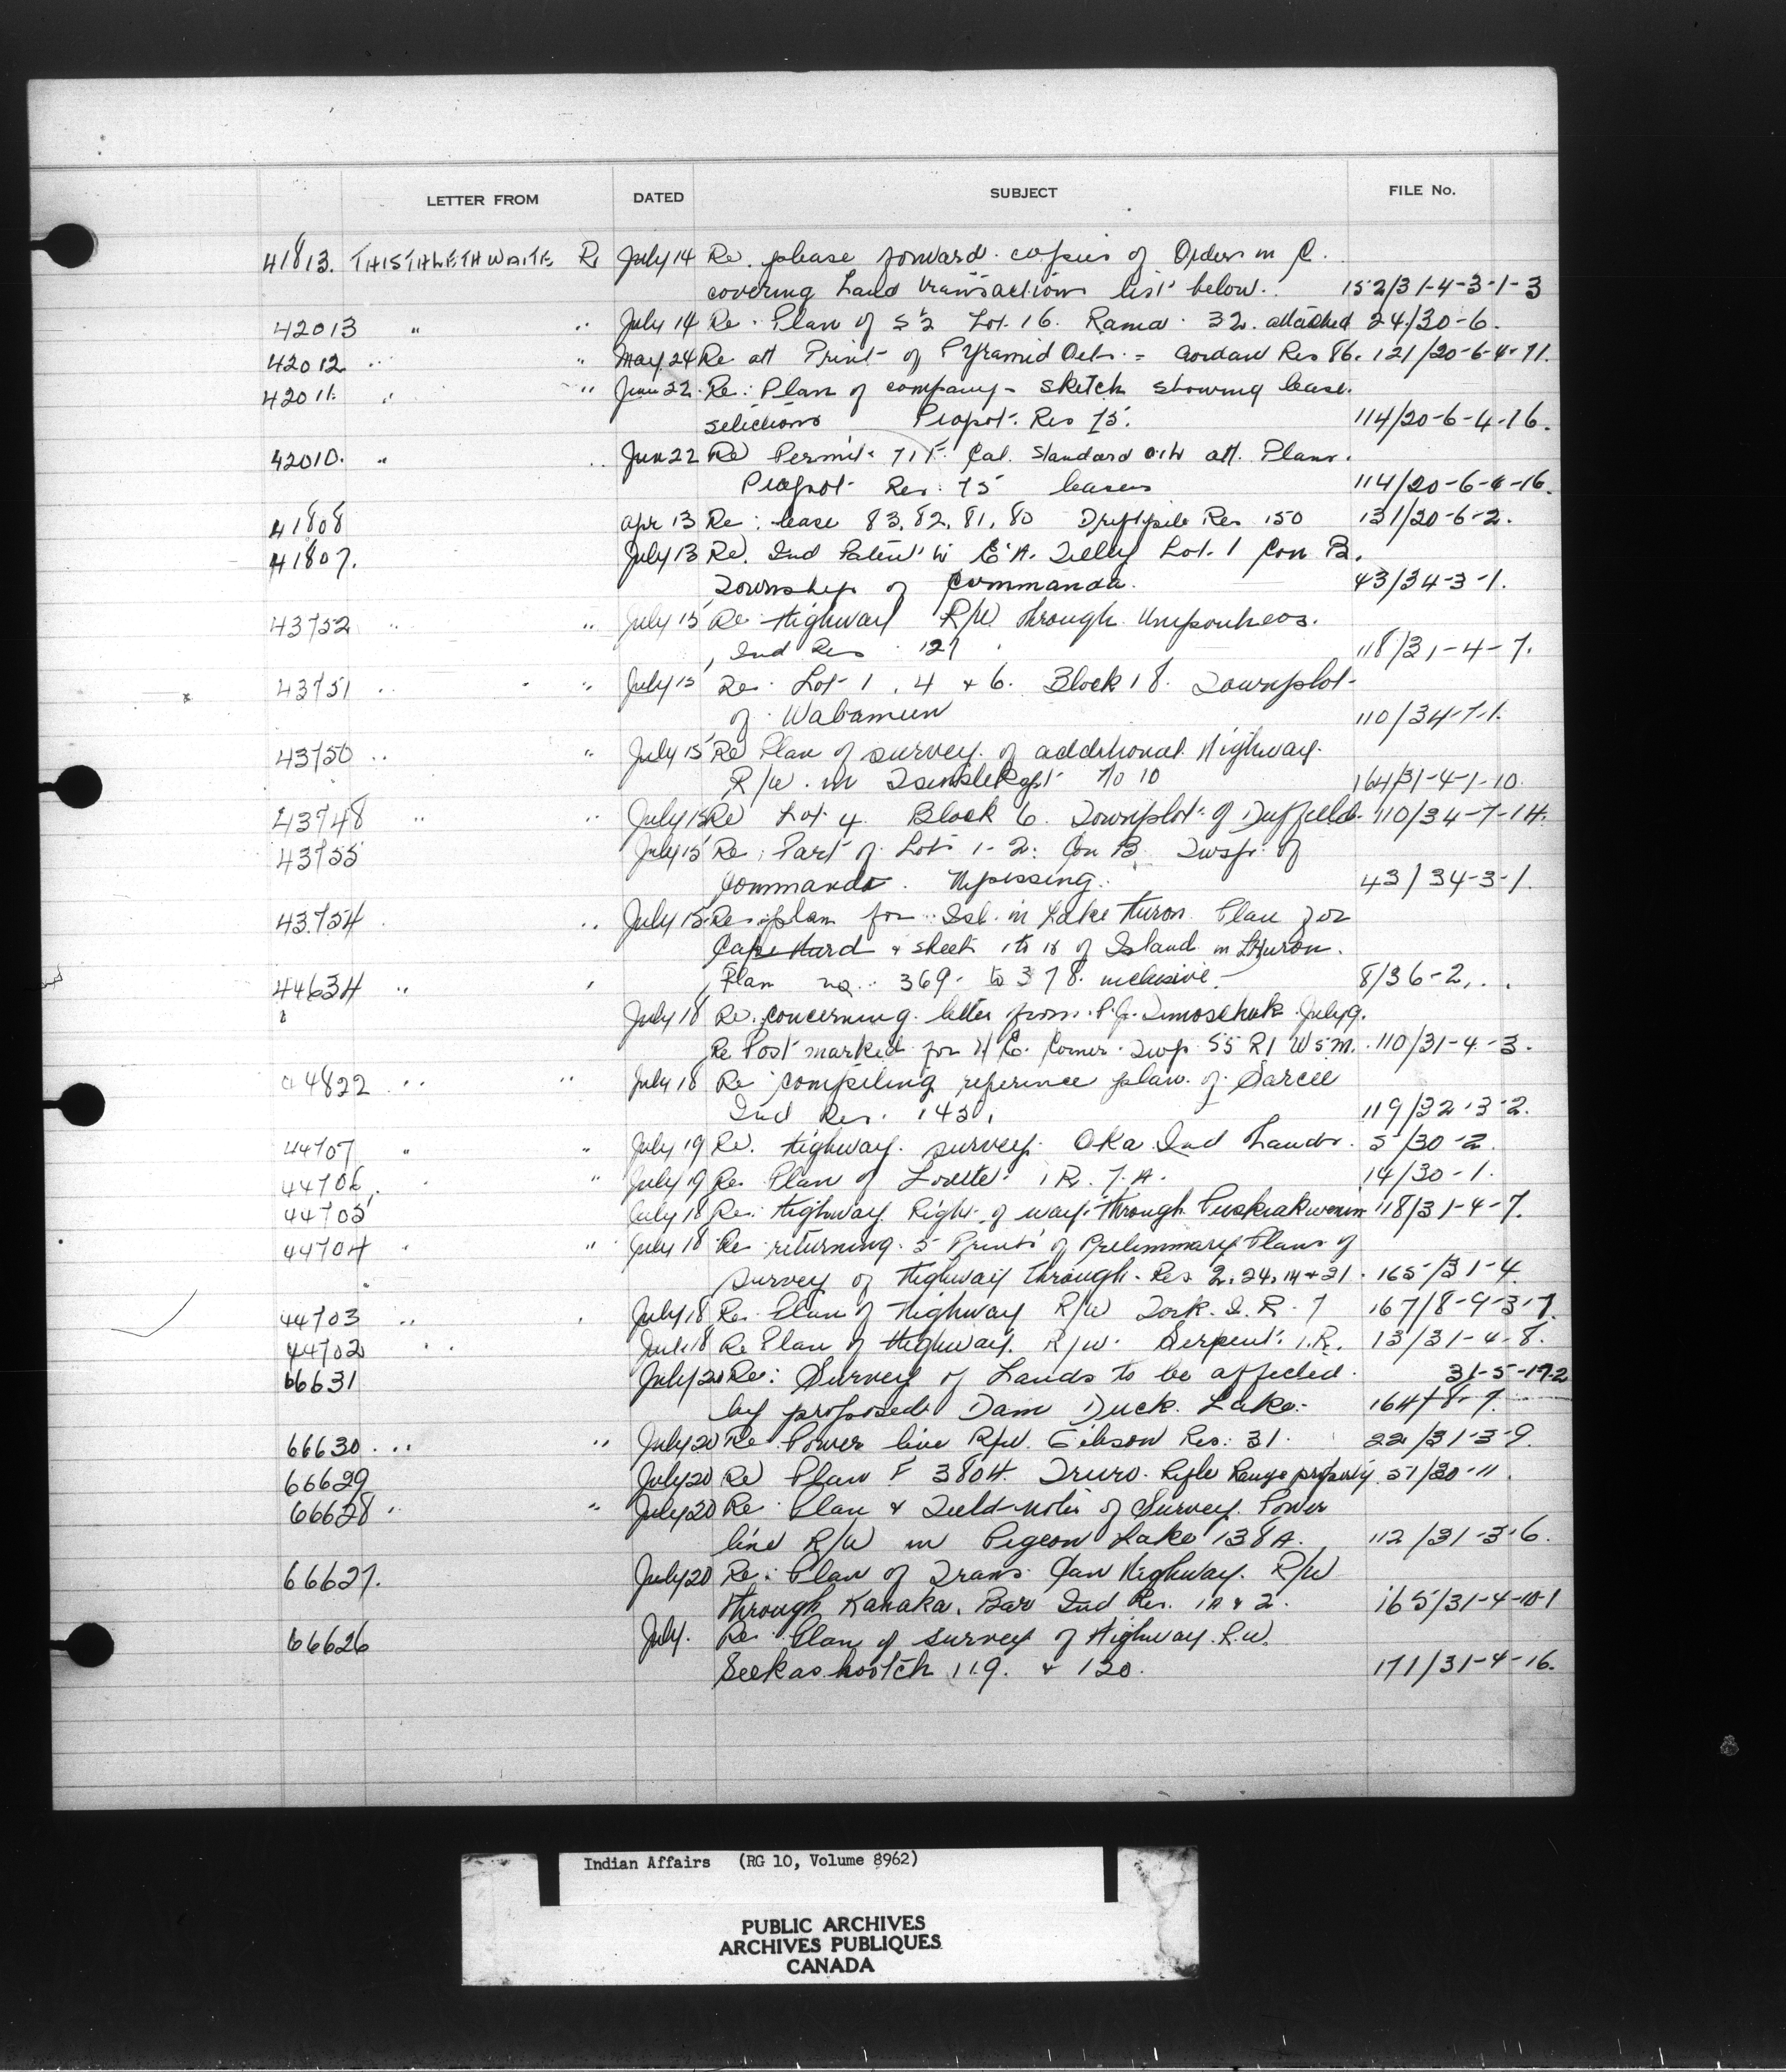 LETTER FROM DATED SUBJECT FILE No.
41813. THISTHLETHWAITE R July 14 Re. please forward copies of Orders in C.
covering Land transactions list below. 152/31-4-3-1-3
42013 " " July 14 Re. Plan of S½ Lot. 16. Rama. 32. attached 24/30-6.
42012 " " May 24 Re att Print of Pyramid = Gordon Res 86. 121/20-6-4-11.
42011. " " Jun 22. Re: Plan of company - sketch showing lease.
selections Peigan Res 75. 114/20-6-4-16.
42010. " " Jun 22 Re Permit Cal. Standard att. Plans.
Res. 75 leases 114/20-6-4-16.
41808 Apr 13 Re: lease 83, 82, 81, 80 Driftpile Res 150 131/20-6-2.
41807. July 13 Re. Ind Patent E.A. Tilley Lot. 1 Con B.
Township of Commanda. 43/34-3-1.
43752 " " July 15 Re Highway R/W through Unipouheos.
Ind Res 127 118/31-4-7.
43751 " " July 15 Re. Lot 1, 4 + 6. Block 18. Townplot
of Wabamun 110/34-7-1.
43750 " " July 15 Re Plan of survey of additional Highway.
R/W. in Tsinstikept No 10 164/31-4-1-10.
43748 " " July 15 Re Lot 4 Block 6. Townplot of Duffield. 110/34-7-14.
43755 July 15 Re. Part of Lots 1-2. Con B. Twsp. of
Commanda. Nipissing. 43/34-3-1.
43754 " July 15 Re plan for Isl. in Lake Huron. Plan for
Cape Hurd + sheets 1 to 18 of Island in L Huron.
44634 " " Plan no. 369. to 378. inclusive. 8/36-2.
July 18 Re. concerning letter from P.J. Timoschuk July 9.
Re Post marked for N E. Corner Twp. 55 R1 W5M. 110/31-4-3.
44822 " " July 18 Re compiling reference plan of Sarcee
Ind Res. 145. 119/32-3-2.
44707 " " July 19 Re. Highway survey. Oka Ind Lands. 5/30-2.
44706. " " July 19 Re Plan of Lorette. I R. 7.A. 14/30-1.
44705 July 18 Re. Highway Right of way through Puskiakiwenin 118/31-4-7.
44704 " " July 18 Re returning 5 Prints of Preliminary Plans of
survey of Highway through Res. 2, 24, 14 + 21. 165/31-4
44703 " " July 18 Re. Plan of Highway R/W York. I. R. 7 167/8-9-3-7
44702 " " July 18 Re Plan of Highway. R/W. Serpent. I.R. 13/31-4-8.
66631 July 20 Re: Survey of Lands to be affected. 31-5-17-2
by proposed Dam Duck Lake. 164/8-7.
66630. " " July 20 Re Power line R/W. Gibson Res: 31. 22/31-3-9.
66629 July 20 Re Plan F 3804. Truro. Rifle Range property. 51/30-11.
66628 " " July 20 Re. Plan & Field notes of Survey. Power
line R/W in Pigeon Lake 138A. 112/31-3-6.
66627. July 20 Re. Plan of Trans Can Highway. R/W
through Kanaka Bar Ind Res. 1A & 2. 165/31-4-10-1
66626 July. Re. Plan of survey of Highway R.W.
Seekaskootch 119. & 120. 171/31-4-16.
Indian Affairs (RG 10, Volume 8962)
PUBLIC ARCHIVES
ARCHIVES PUBLIQUES
CANADA